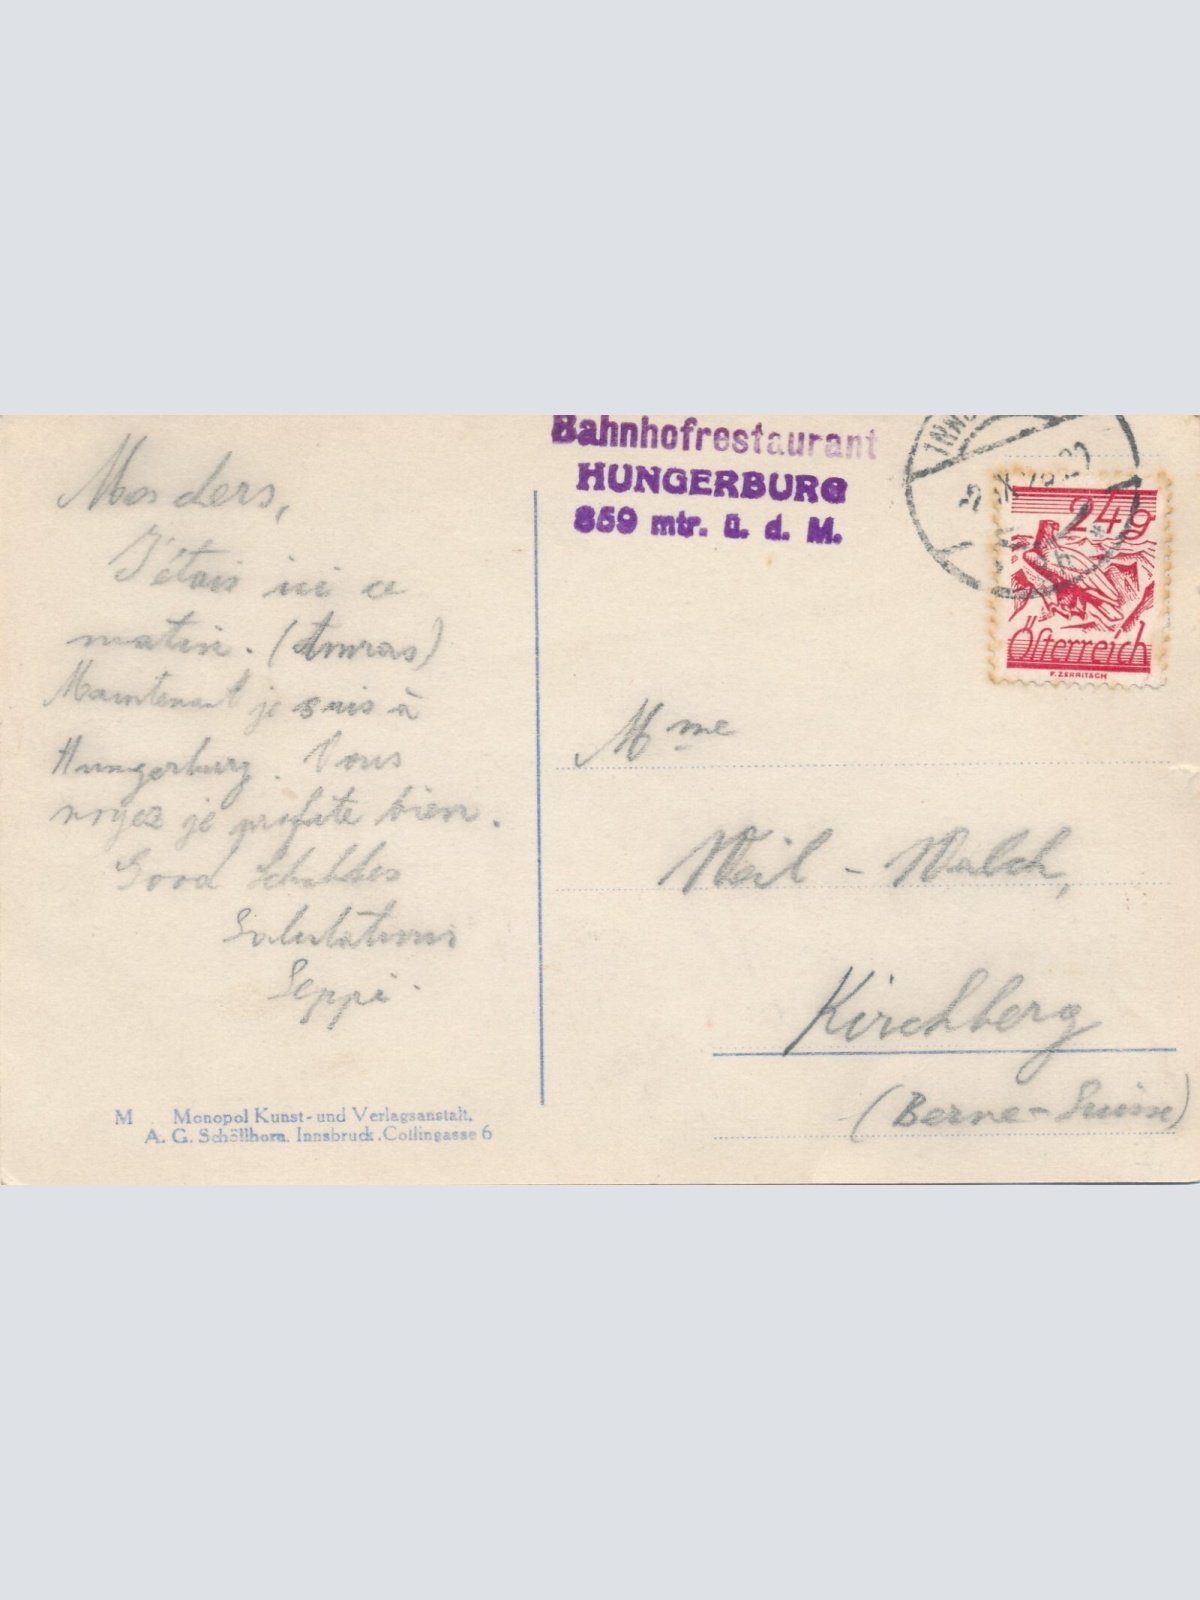 Mes chers,
J'étais ici ce
matin. (Amras)
Maintenant je suis à
Hungerburg. Vous
voyez je profite bien.
Good
Salutations
Seppi.
M Monopol Kunst- und Verlagsanstalt.
A. G. Schöllhorn. Innsbruck. Collingasse 6
Bahnhofrestaurant
HUNGERBURG
859 mtr. ü. d. M.
INNS
24g
Österreich
F. ZERRITSCH
Mme
Weil - Walch,
Kirchberg
(Berne-Suisse)